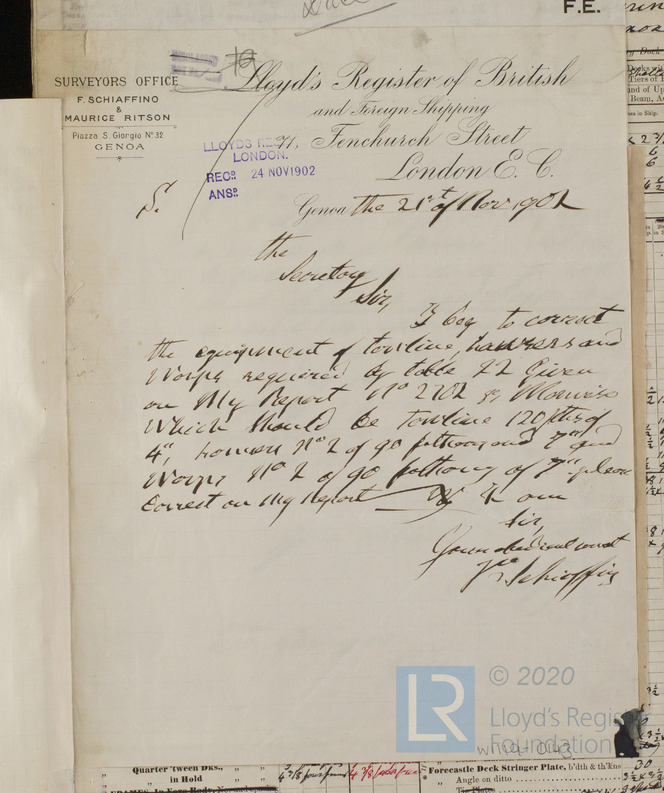 F.E.
SURVEYORS OFFICE
F. SCHIAFFINO
&
MAURICE RITSON
Piazza S. Giorgio Nº 32
GENOA
Lloyd's Register of British
and Foreign Shipping
71, Fenchurch Street
London E. C.
LLOYDS REGR,
LONDON.
RECD. 24 NOV 1902
ANSD.
S.
Genoa the 21st of Nov 1902
the
Secretary
Sir,
I beg to correct
the equipment of towline, hawsers and
Warps required by table 22 Given
on My Report Nº 2702
Which should be towline 120 fths of
4", hawser Nº 2 of 90 fathoms and 7" and
Warps Nº 2 of 90 fathoms of 7" please
Correct on My Report I am
Sir,
Your obedient servant
Schiaffino
© 2020
LR
Lloyd's Register
Foundation
Quarter 'tween Dks.,
in Hold
Forecastle Deck Stringer Plate, b'dth & th'kns
30
Angle on ditto